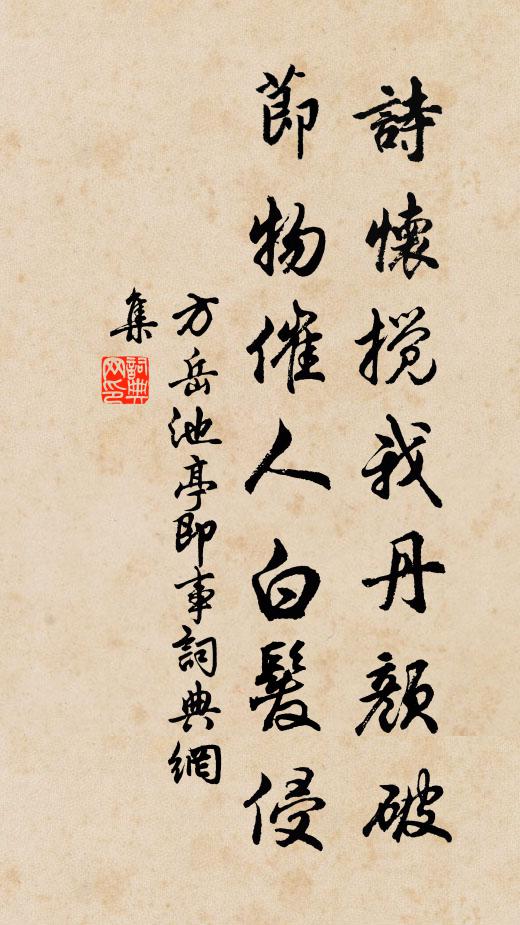 詩懷攪我丹顏破
節物催人白髮侵
方岳池亭即事詞典網
集
詞典
网印